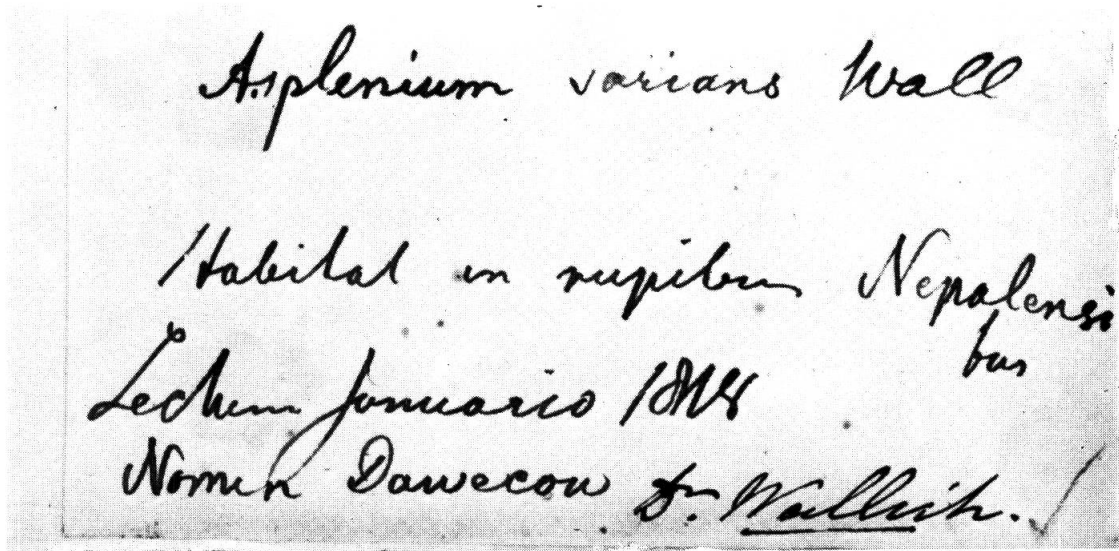 Asplenium varians Wall
Habitat in rupibus Nepalensi
bus
Lectum Januario 1818
Nomen Dr. Wallich.